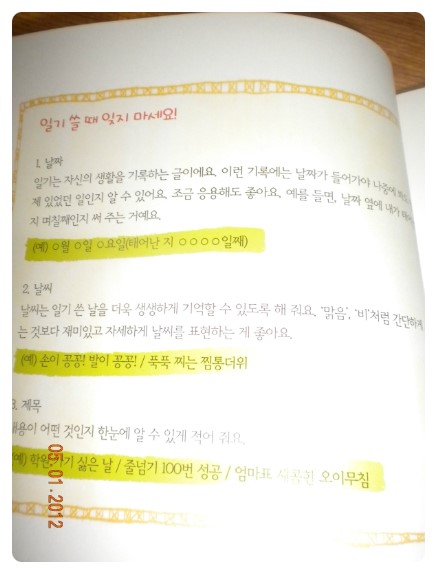 일기 쓸 때 잊지 마세요!
1. 날짜
일기는 자신의 생활을 기록하는 글이에요. 이런 기록에는 날짜가 들어가야 나중에
제 있었던 일인지 알 수 있어요. 조금 응용해도 좋아요. 예를 들면, 날짜 옆에 내가
지 며칠째인지 써 주는 거예요.
(예) ○월 ○일 ○요일(태어난 지 ○○○○일째)
2. 날씨
날씨는 일기 쓴 날을 더욱 생생하게 기억할 수 있도록 해 줘요. '맑음', '비'처럼 간단하게
는 것보다 재미있고 자세하게 날씨를 표현하는 게 좋아요.
(예) 손이 꽁꽁! 발이 꽁꽁! / 푹푹 찌는 찜통더위
3. 제목
내용이 어떤 것인지 한눈에 알 수 있게 적어 줘요.
(예) 학원 가기 싫은 날 / 줄넘기 100번 성공 / 엄마표 새콤한 오이무침
05.01.2012